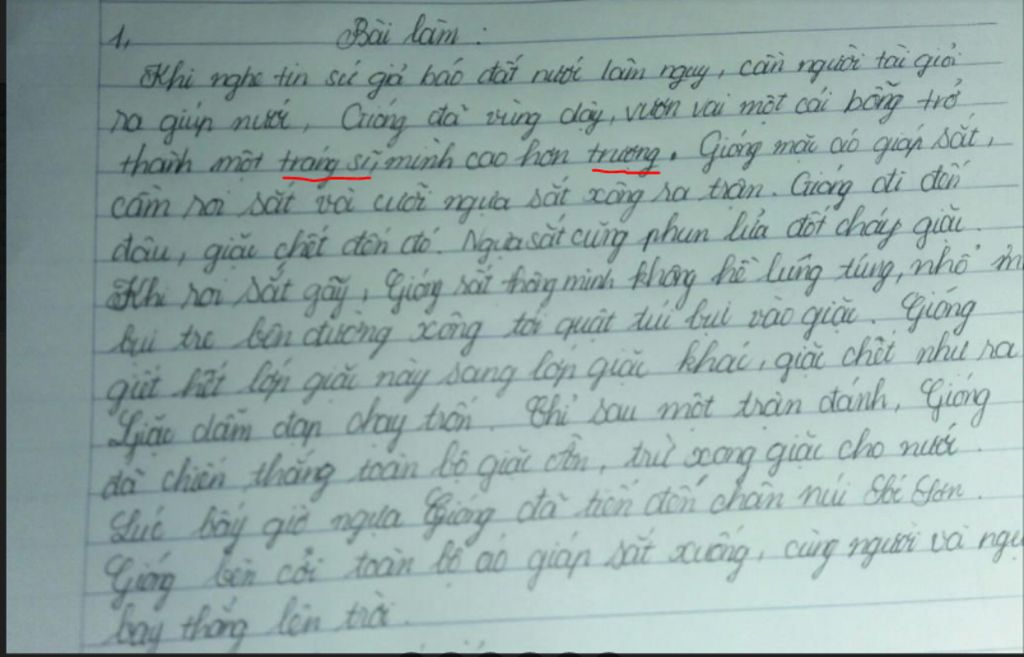 1, Bài làm :
Khi nghe tin sứ giả báo đất nước lâm nguy, cần người tài giỏi
ra giúp nước, Gióng đã vùng dậy, vươn vai một cái bỗng trở
thanh một tráng sĩ, mình cao hơn trương. Gióng mặc áo giáp sắt,
cầm roi sắt và cưỡi ngựa sắt xông ra trận. Gióng đi đến
đâu, giặc chết đến đó. Ngựa sắt cũng phun lửa đốt cháy giặc.
Khi roi sắt gãy, Gióng rất thông minh không hề lúng túng, nhổ
bụi tre bên đường xông tới quật túi bụi vào giặc. Gióng
giết hết lớp giặc này sang lớp giặc khác, giặc chết như rạ
Giặc dẫm đạp chạy trốn. Chỉ sau một trận đánh, Gióng
đã chiến thắng toàn bộ giặc Ân, trừ xong giặc cho nước.
Lúc bấy giờ ngựa Gióng đã tiến đến chân núi Sóc Sơn.
Gióng bèn cởi toàn bộ áo giáp sắt xuống, cùng người và
bay thẳng lên trời.